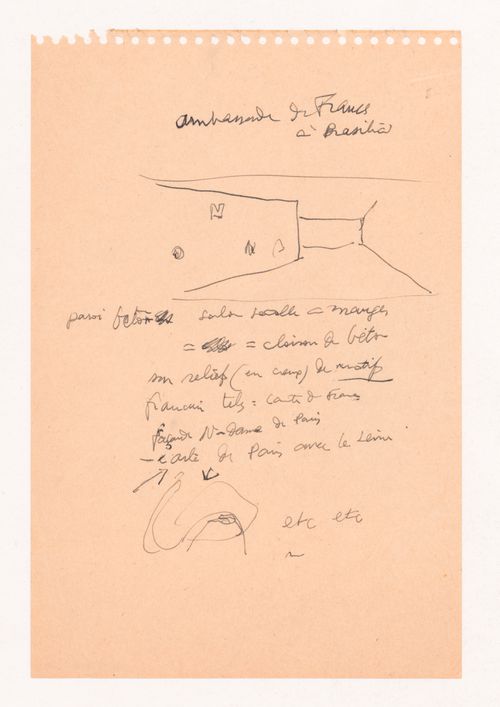 ambassade de France
à Brasilia
paroi béton salon salle à manger
= = cloison de béton
en relief (en creux) de motifs
français tels = carte de France
façade N-Dame de Paris
- carte de Paris avec la Seine
etc etc